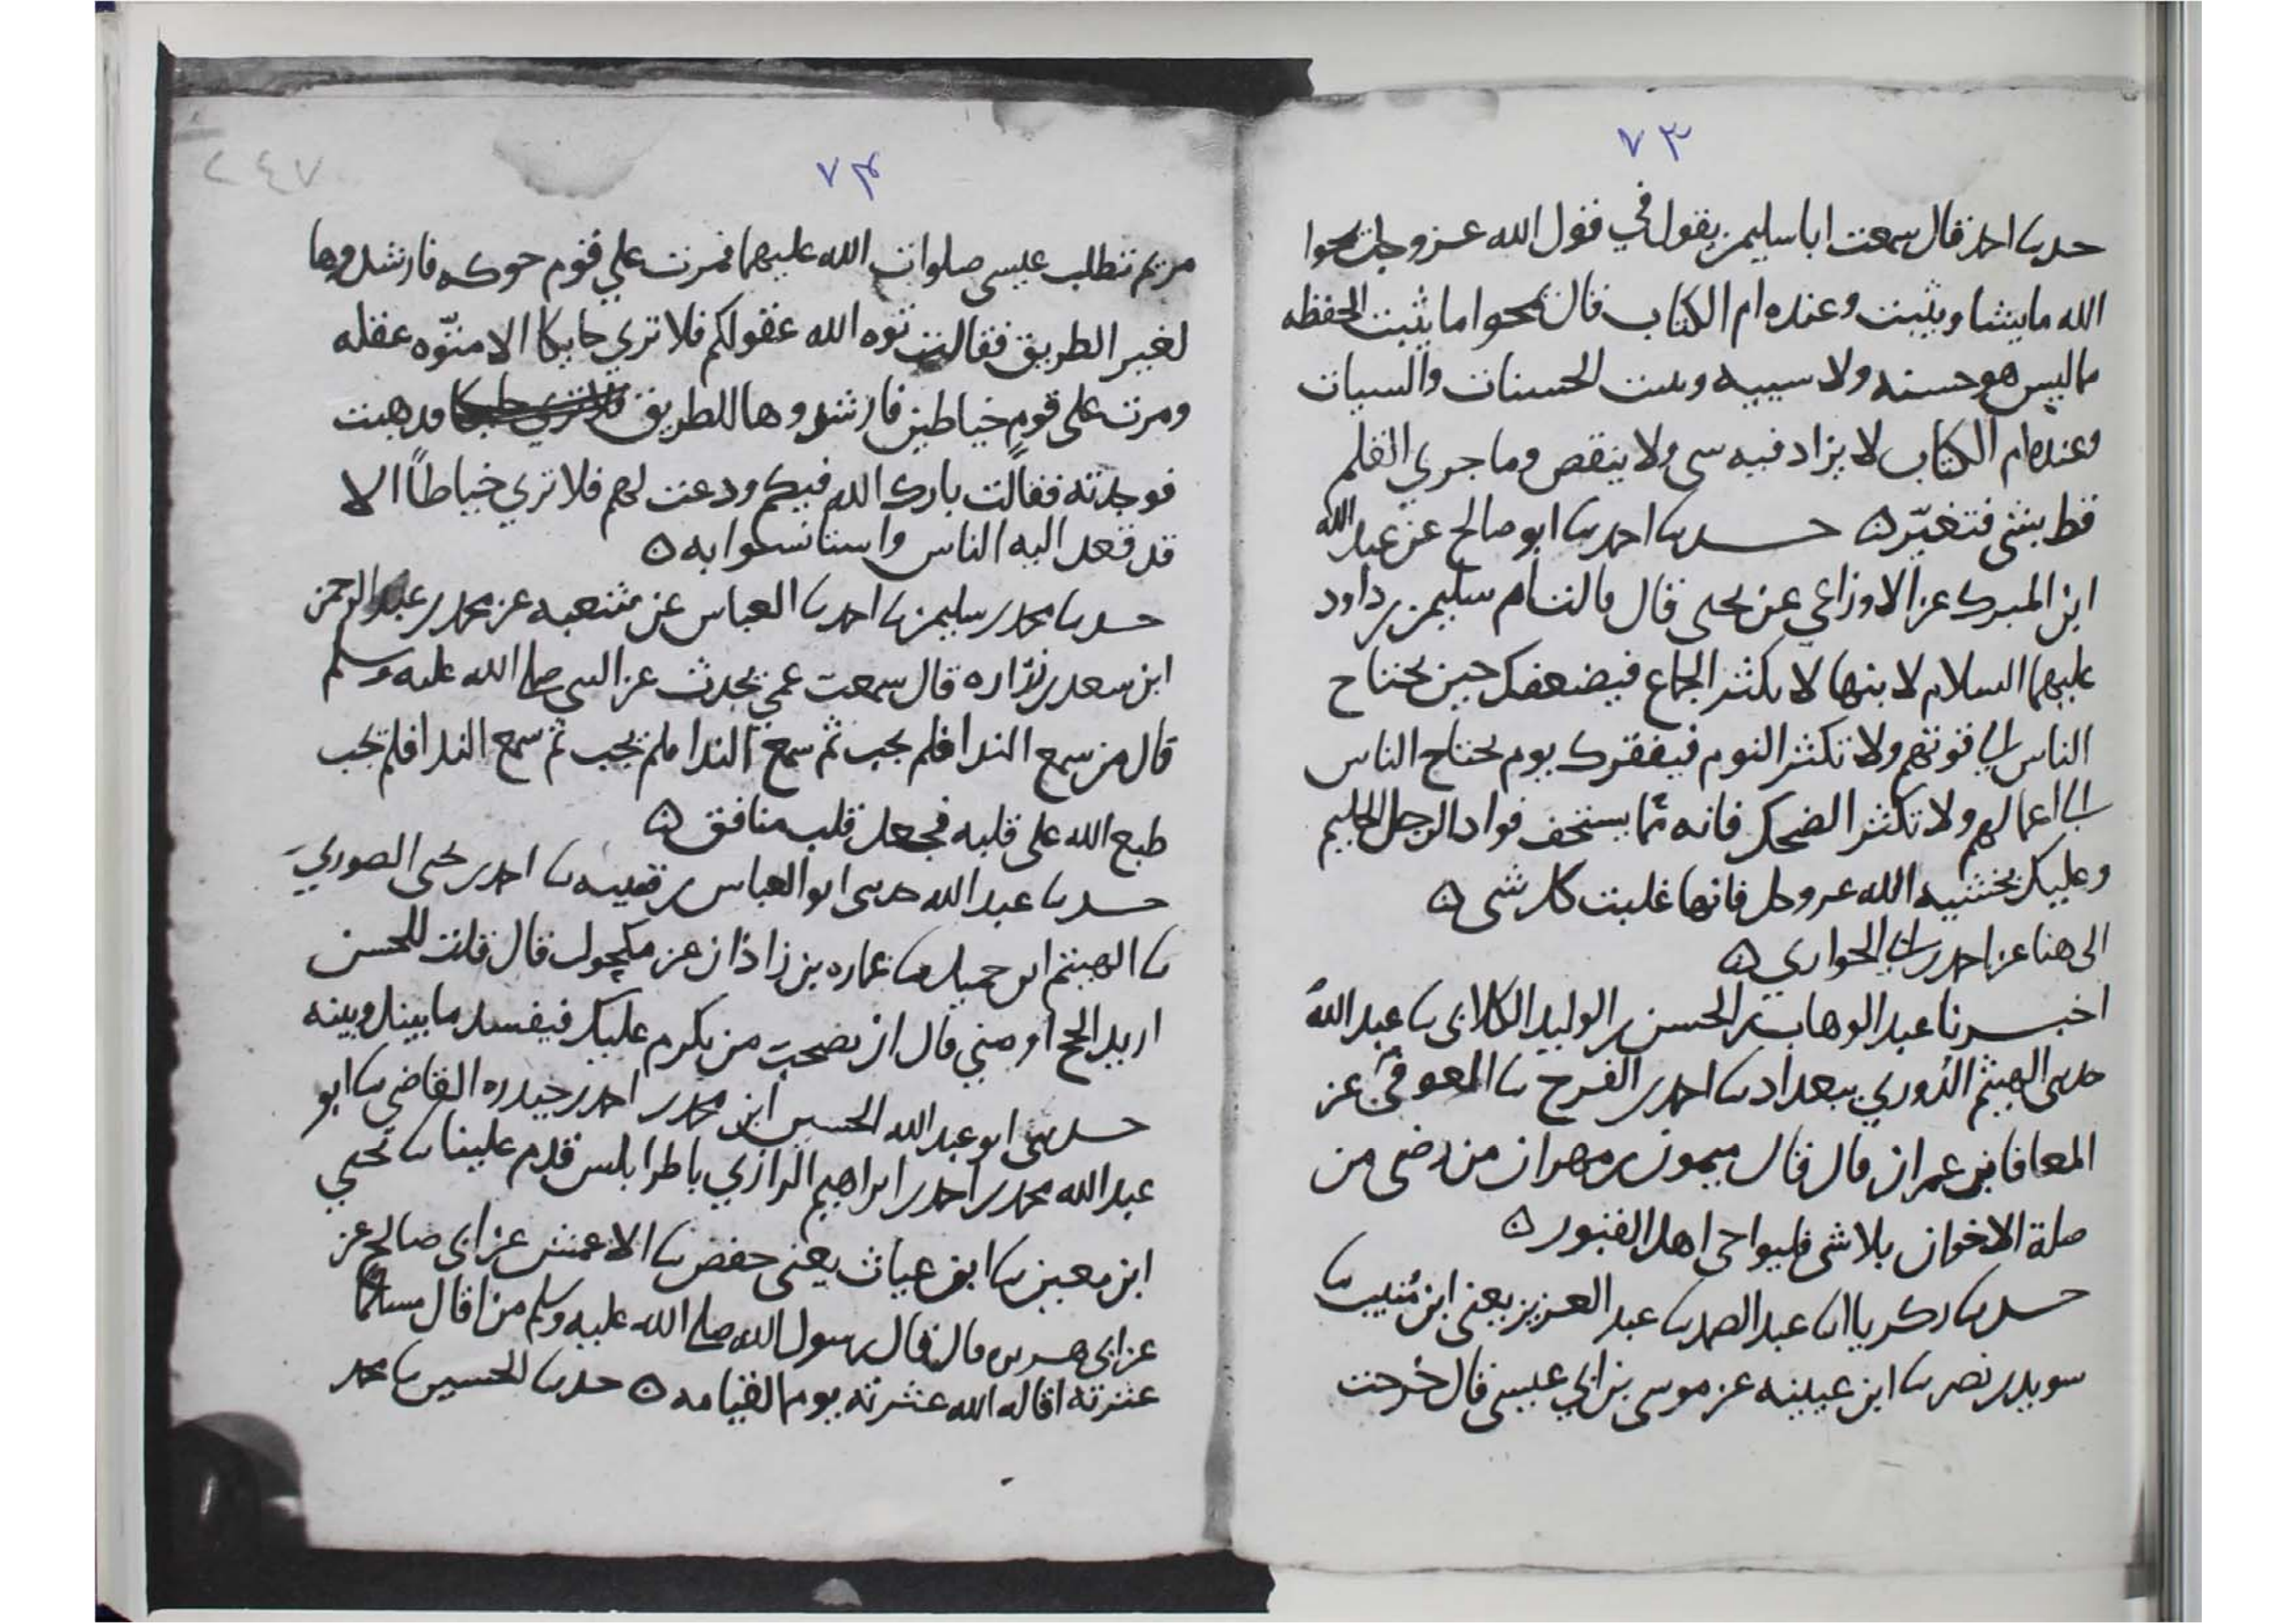 ٧٣
حدثنا احمد قال سمعت ابا سليمن يقول في قول الله عز وجل يمحوا
الله ما يشا ويثبت وعنده ام الكتاب قال يمحوا ما يثبت الحفظه
مما ليس هو حسنه ولا سييه ويثبت الحسنات والسيات
وعنده ام الكتاب لا يزاد فيه شي ولا ينقص وما جري القلم
قط بشي فتغيّر ه حدثنا احمد نا ابو صالح عن عبد الله
ابن المبرك عن الاوزاعي عن يحيى قال قالت ام سليمن بن داود
عليهما السلام لابنها لا تكثر الجماع فيضعفك حين يحتاج
الناس الى قوتهم ولا تكثر النوم فيفقرك يوم يحتاج الناس
الى اعمالهم ولا تكثر الضحك فانه مما يستخف فواد الرجل الحليم
وعليك بخشيه الله عز وجل فانها غلبت كل شي ه
الى هنا عن احمد بن ابي الحواري ه
اخبرنا عبد الوهاب بن الحسن بن الوليد الكلابي نا عبد الله
حدثني الهيثم الدوري ببغداد نا احمد بن الفرج نا المعوفي عن
المعافا بن عمران قال قال ميمون بن مهران من رضي من
صلة الاخوان بلا شي فليواخي اهل القبور ه
حدثنا زكريا نا عبد الصمد نا عبد العزيز يعني ابن منيب نا
سويد بن نصر نا ابن عيينه عن موسى بن ابي عيسى قال خرجت
٧٤
٢٤٧
مريم تطلب عيسى صلوات الله عليهما فمرت علي قوم حوكه فارشدوها
لغير الطريق فقالت توه الله عقولكم فلا تري حايكا الا متوّه عقله
ومرت على قوم خياطين فارشدوها للطريق فذهبت
فوجدته فقالت بارك الله فيكم ودعت لهم فلا تري خياطاً الا
قد قعد اليه الناس واستانسوا به ه
حدثنا محمد بن سليمن نا احمد نا العباس عن شعبه عن محمد بن عبد الرحمن
ابن سعد بن زراره قال سمعت عمي يحدث عن النبي صلى الله عليه وسلم
قال من سمع الندا فلم يجب ثم سمع الندا فلم يجب ثم سمع الندا فلم يجب
طبع الله على قلبه فجعل قلب منافق ه
حدثنا عبد الله حدثني ابو العباس بن قتيبه نا احمد بن يحيى الصوري
نا الهيثم ابن جميل نا عماره بن زاذان عن مكحول قال قلت للحسن
اريد الحج اوصني قال ان تصحب من يكرم عليك فيفسد ما بينك وبينه
حدثني ابو عبد الله الحسين ابن محمد بن احمد بن حيدره القاضي نا ابو
عبد الله محمد بن احمد بن ابراهيم الرازي باطرابلس قدم علينا نا يحيى
ابن معين نا ابن غياث يعني حفص نا الاعمش عن ابي صالح عن
عن ابي هريره قال قال رسول الله صلى الله عليه وسلم من اقال مسلماً
عثرته اقاله الله عثرته يوم القيامه ه حدثنا الحسين نا محمد